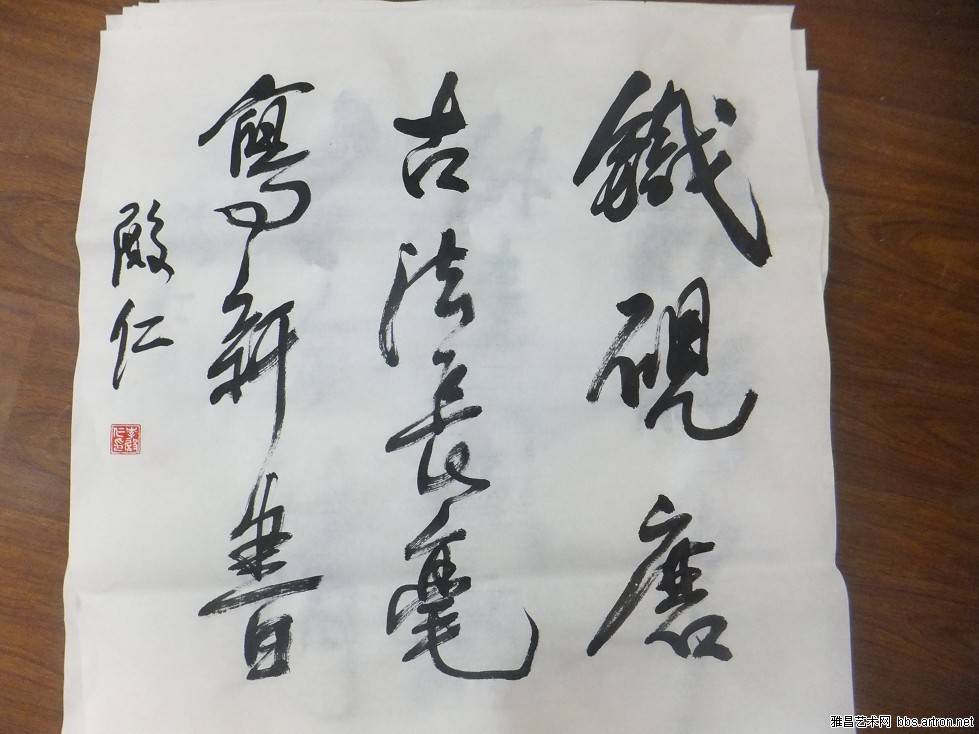 鐵硯磨
古法長毫
寫新書
殿仁
李殿仁印
雅昌艺术网 bbs.artron.net